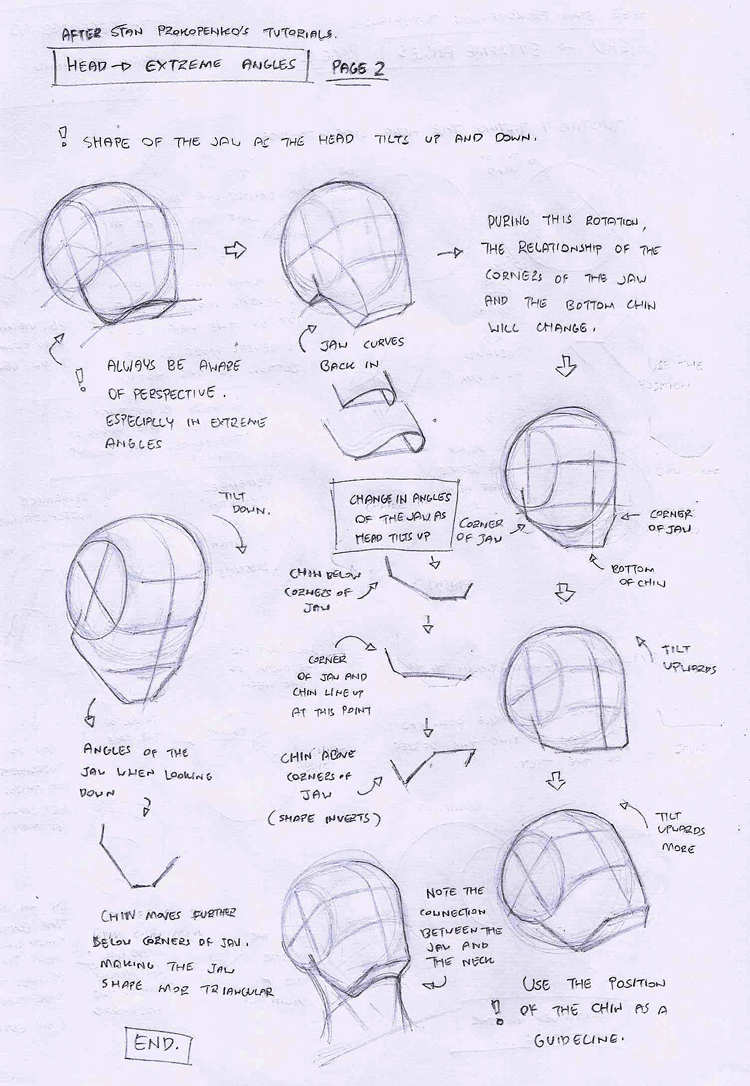 AFTER STAN PROKOPENKO'S TUTORIALS.
HEAD → EXTREME ANGLES
PAGE 2
! SHAPE OF THE JAW AS THE HEAD TILTS UP AND DOWN.
DURING THIS ROTATION,
THE RELATIONSHIP OF THE
CORNERS OF THE JAW
AND THE BOTTOM CHIN
WILL CHANGE.
! ALWAYS BE AWARE
OF PERSPECTIVE.
ESPECIALLY IN EXTREME
ANGLES
JAW CURVES
BACK IN
TILT
DOWN.
CHANGE IN ANGLES
OF THE JAW AS
HEAD TILTS UP
CORNER
OF JAW
CORNER
OF JAW
BOTTOM
OF CHIN
CHIN BELOW
CORNERS OF
JAW
CORNER
OF JAW AND
CHIN LINE UP
AT THIS POINT
TILT
UPWARDS
ANGLES OF THE
JAW WHEN LOOKING
DOWN
CHIN ABOVE
CORNERS OF
JAW
(SHAPE INVERTS)
TILT
UPWARDS
MORE
CHIN MOVES FURTHER
BELOW CORNERS OF JAW.
MAKING THE JAW
SHAPE MOR TRIANGULAR
NOTE THE
CONNECTION
BETWEEN THE
JAW AND
THE NECK
! USE THE POSITION
OF THE CHIN AS A
GUIDELINE.
END.